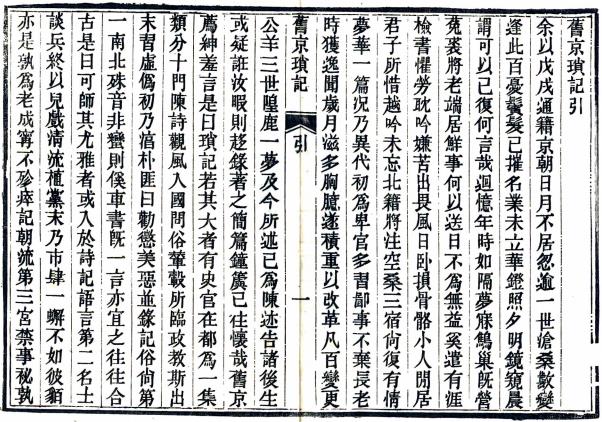 舊京瑣記引
余以戊戌通籍京朝日月不居忽逾一世滄桑數變
逢此百憂鬢髮已摧名業未立華鐙照夕明鏡窺晨
謂可以已復何言哉迴憶年時如隔夢寐鷦巢旣營
菟裘將老端居鮮事何以送日不爲無益奚遣有涯
檢書懼勞耽吟嫌苦出畏風日卧損骨骼小人閒居
君子所惜越吟未忘北籍將注空桑三宿尙復有情
夢華一篇況乃異代初爲卑官多習鄙事不棄長老
時獲逸聞歲月滋多胸臆遂積重以改革凡百變更
舊京瑣記
引
一
公羊三世隍鹿一夢及今所述已爲陳迹告諸後生
或疑誑汝暇則趍錄著之簡篇鐘簴已往懷哉舊京
薦紳羞言是曰瑣記若其大者有史官在都爲一集
類分十門陳詩觀風入國問俗輦轂所臨政教斯出
末習虛僞初乃湻朴匪曰勸懲美惡並錄記俗尙第
一南北殊音非蠻則傒車書旣一言亦宜之往往合
古是曰可師其尤雅者或入於詩記語言第二名士
談兵終以兒戲淸流植黨末乃市肆一蠏不如彼貊
亦是孰爲老成寗不殄瘁記朝流第三宮禁事祕孰